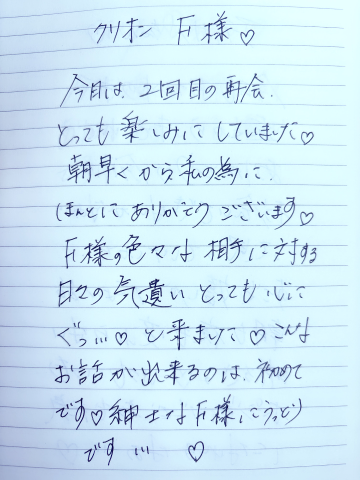 クリオン Fi様♡
今日は、2回目の再会、
とっても楽しみにしていました♡
朝早くから私の為に、
ほんとにありがとうございます♡
Fi様の色々な相手に対する
日々の気遣いとっても心に
ぐっ…♡と来ました♡こんな
お話が出来るのは、初めて
です♡紳士なFi様にうっとり
です… ♡